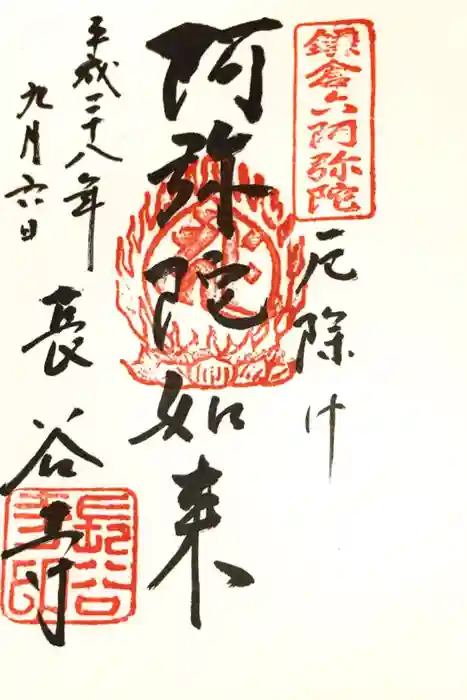 鎌倉六阿弥陀
厄除け
阿弥陀如来
平成二十八年
九月六日
長谷寺
長谷寺印